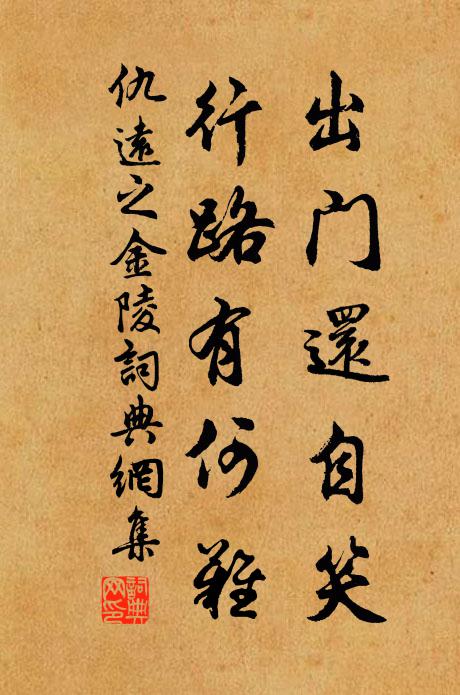 出門還自笑
行路有何難
仇遠之金陵詞典網集
詞典網印